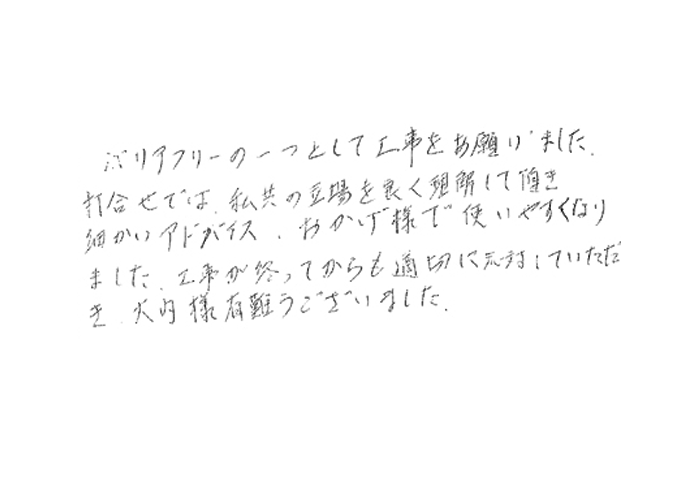 バリアフリーの一つとして工事をお願いしました、
打合せでは、私共の立場を良く理解して頂き
細かいアドバイス、おかげ様で使いやすくなり
ました、工事が終ってからも適切に応対していただ
き、大内様有難うございました、